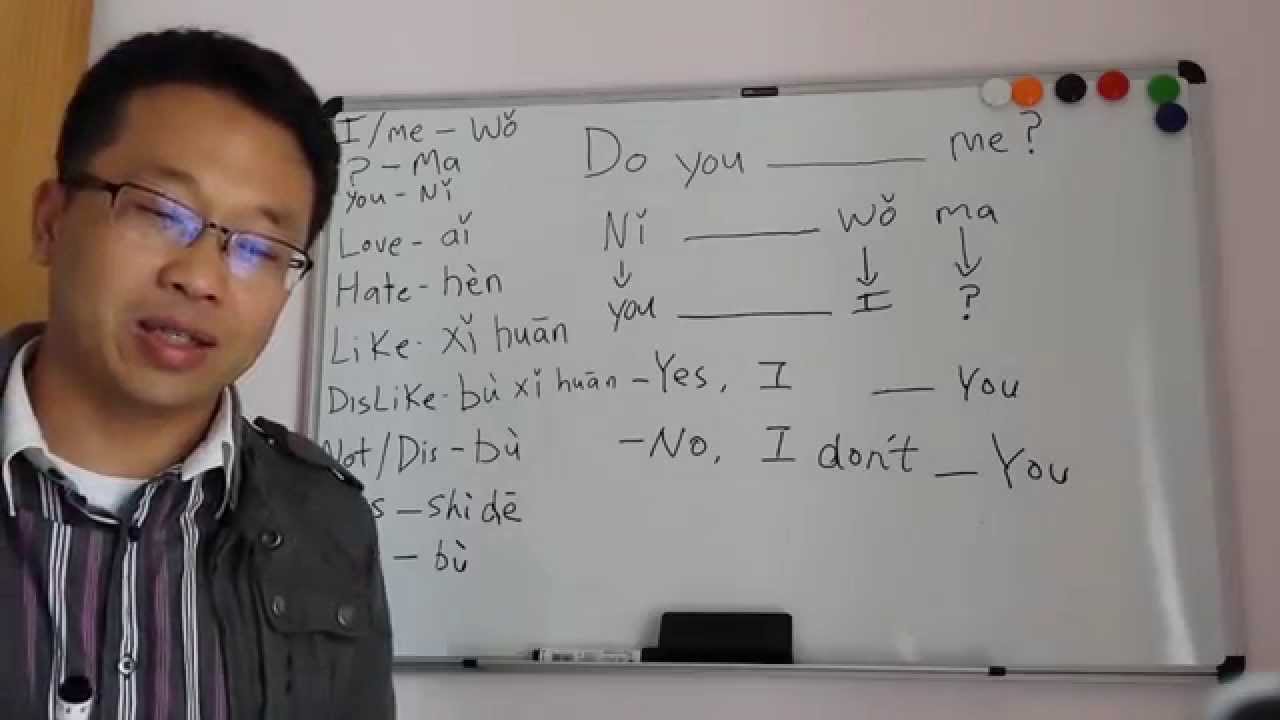 I/me - Wǒ
? - Ma
You - Nǐ
Love - aǐ
Hate - hèn
Like - xǐ huān
DisLiKe - bù xǐ huān
Not/Dis - bù
s - shì dē
- bù
Do you ______ me?
Nǐ ______ wǒ ma
↓ ↓ ↓
you ______ I ?
- Yes, I __ You
- No, I don't _ You